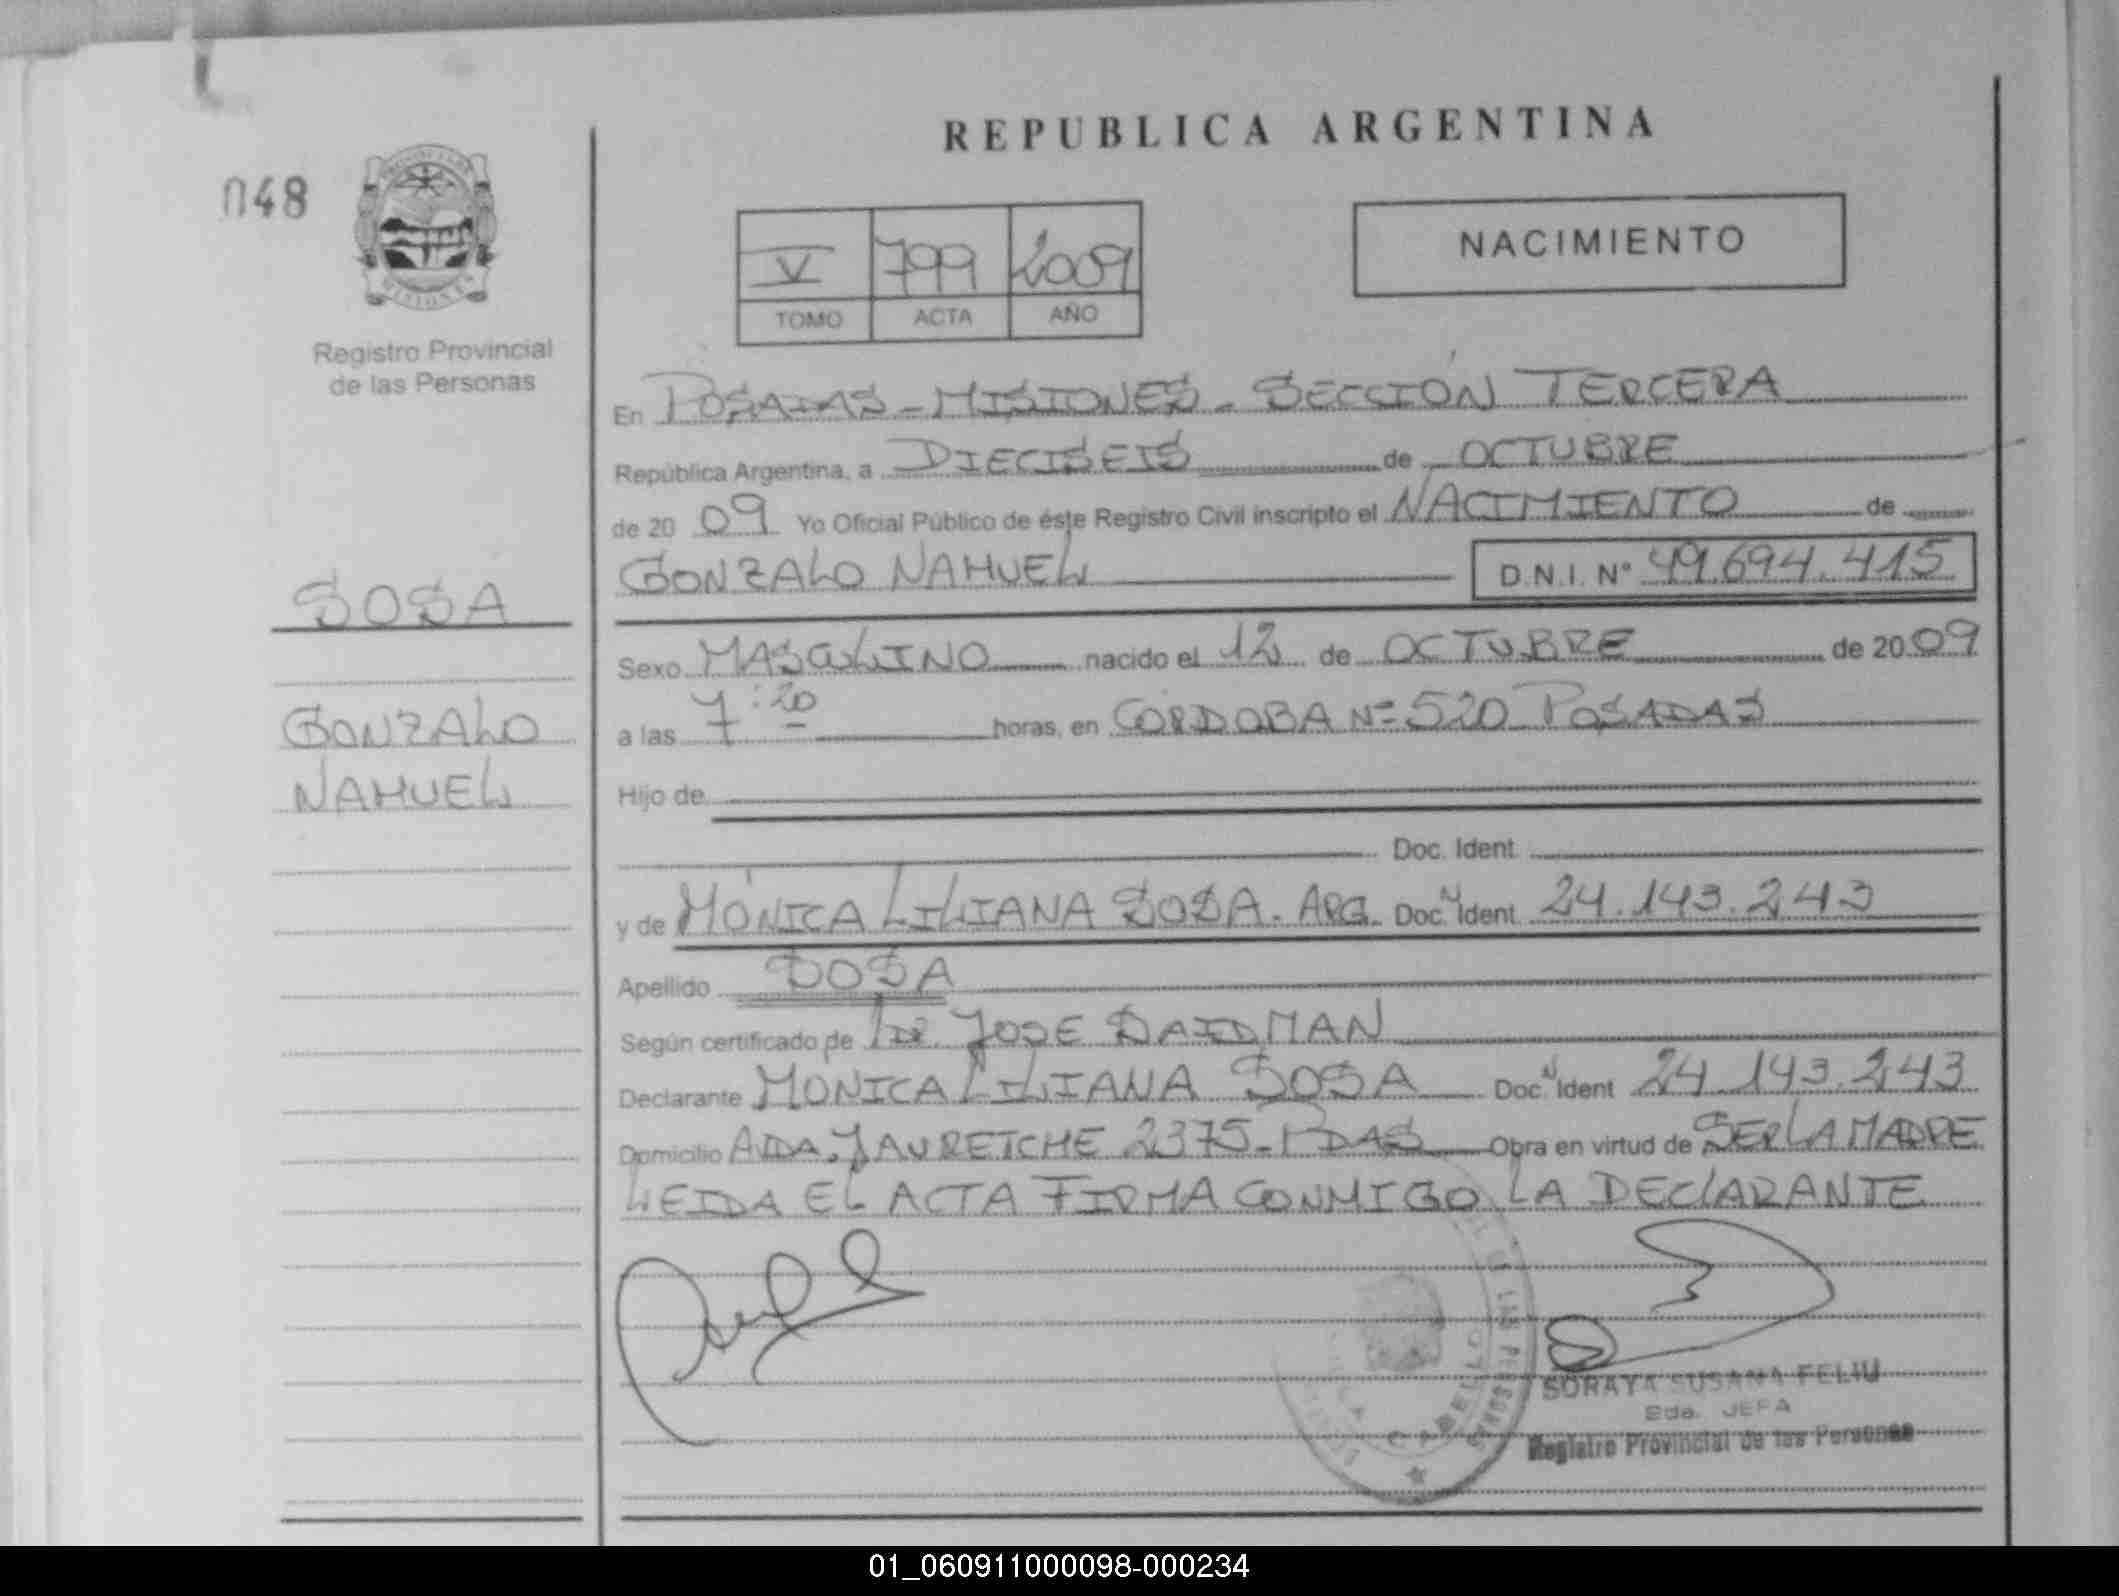 REPUBLICA ARGENTINA
048
MISIONES
Registro Provincial
de las Personas
V 799 2009
TOMO ACTA AÑO
NACIMIENTO
En POSADAS - MISIONES - SECCIÓN TERCERA
República Argentina, a DIECISEIS de OCTUBRE
de 2009 Yo Oficial Público de éste Registro Civil inscripto el NACIMIENTO de
GONZALO NAHUEL D.N.I. Nº 49.694.415
SOSA
GONZALO
NAHUEL
Sexo MASCULINO nacido el 12 de OCTUBRE de 2009
a las 7:20 horas, en CORDOBA Nº 520 POSADAS
Hijo de
Doc. Ident.
y de MÓNICA LILIANA SOSA. ARG. Doc. N Ident. 24.143.243
Apellido SOSA
Según certificado de Dr. JOSE
Declarante MONICA LILIANA SOSA Doc. N Ident 24.143.243
Domicilio AVDA. JAURETCHE 2375 - PDAS Obra en virtud de SER LA MADRE
LEIDA EL ACTA FIRMA CONMIGO LA DECLARANTE
DE LAS PERSONAS
SORAYA SUSANA FELIU
JEFA
Registro Provincial de las Personas
01_060911000098-000234